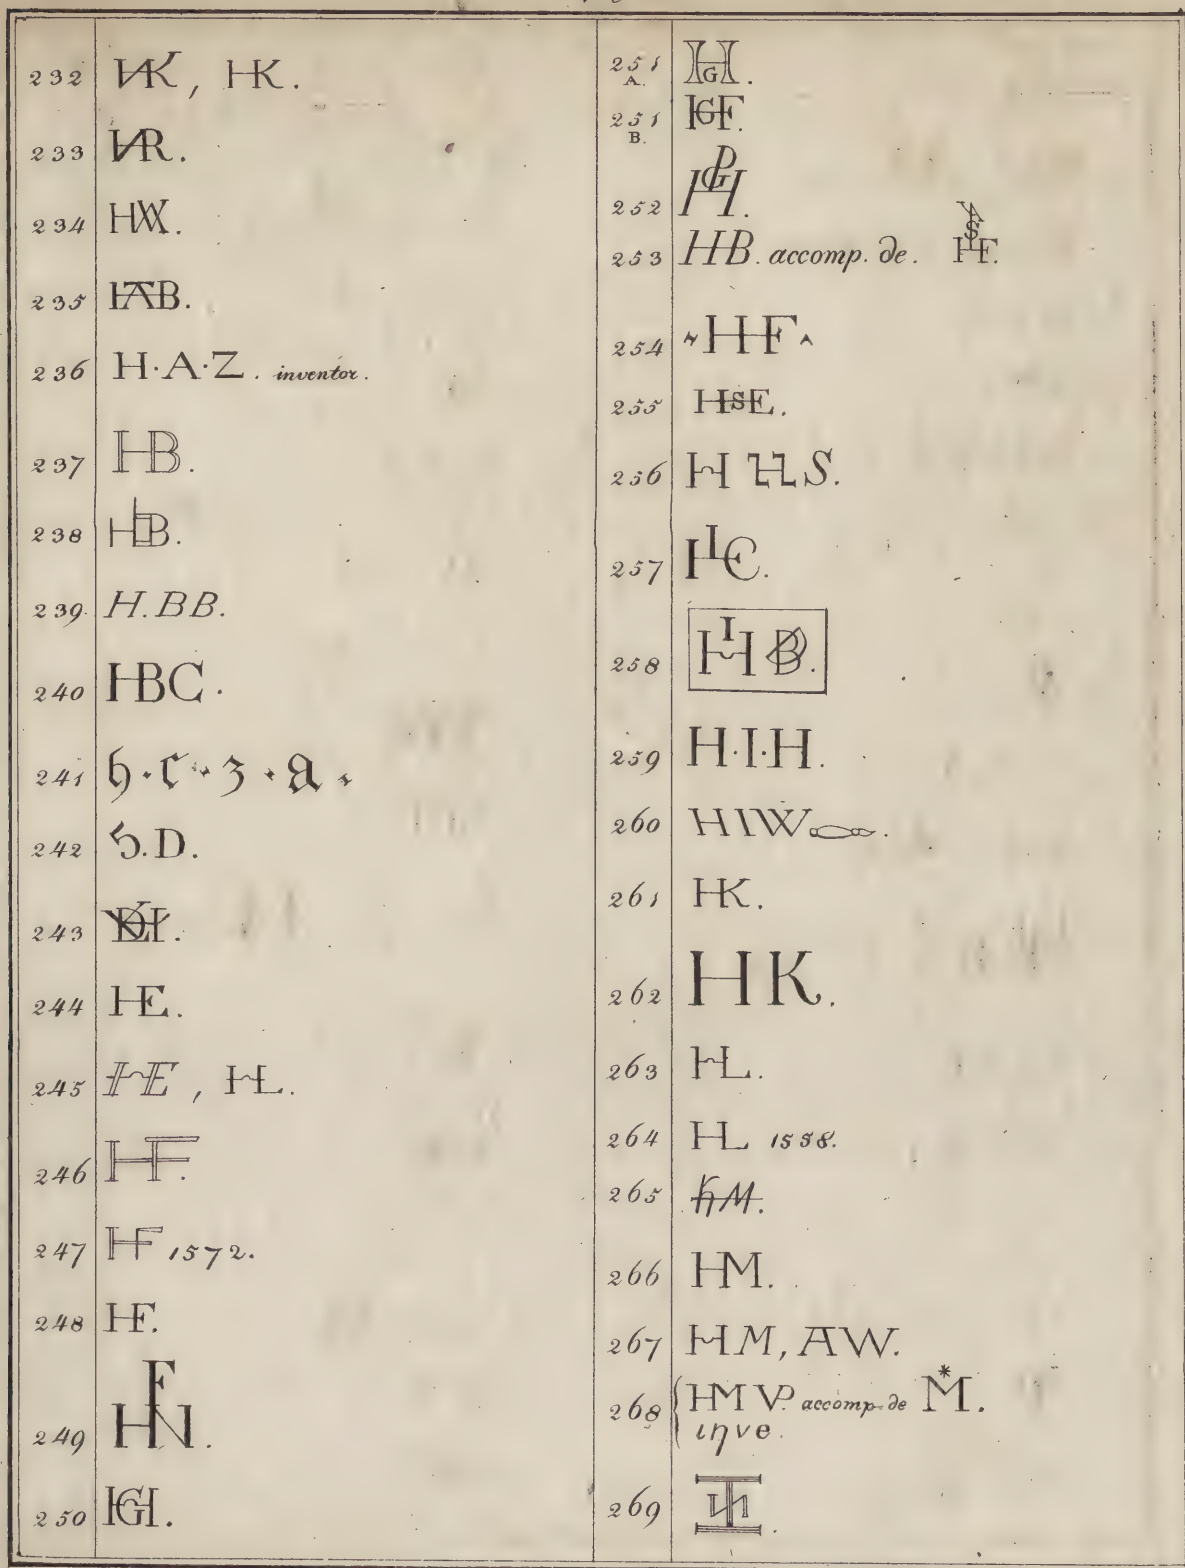 232 HK, HK.
233 HR.
234 HW.
235 HAB.
236 H·A·Z. inventor.
237 HB.
238 HLB.
239 H.BB.
240 HBC.
241 h·c·z·a·
242 H.D.
243
244 HE.
245 HE, HL.
246 HF.
247 HF 1572.
248 HF.
249 HFN.
250 HGH.
251 A. HG.
251 B. HGF.
252 HGP.
253 HB. accomp. de. HSF.
254 HF
255 HSE.
256 H S.
257 HIC.
258 HI B.
259 H·I·H.
260 HIW.
261 HK.
262 HK.
263 HL.
264 HL 1558.
265 HM.
266 HM.
267 HM, AW.
268 HM VP. accomp. de M.
inve.
269